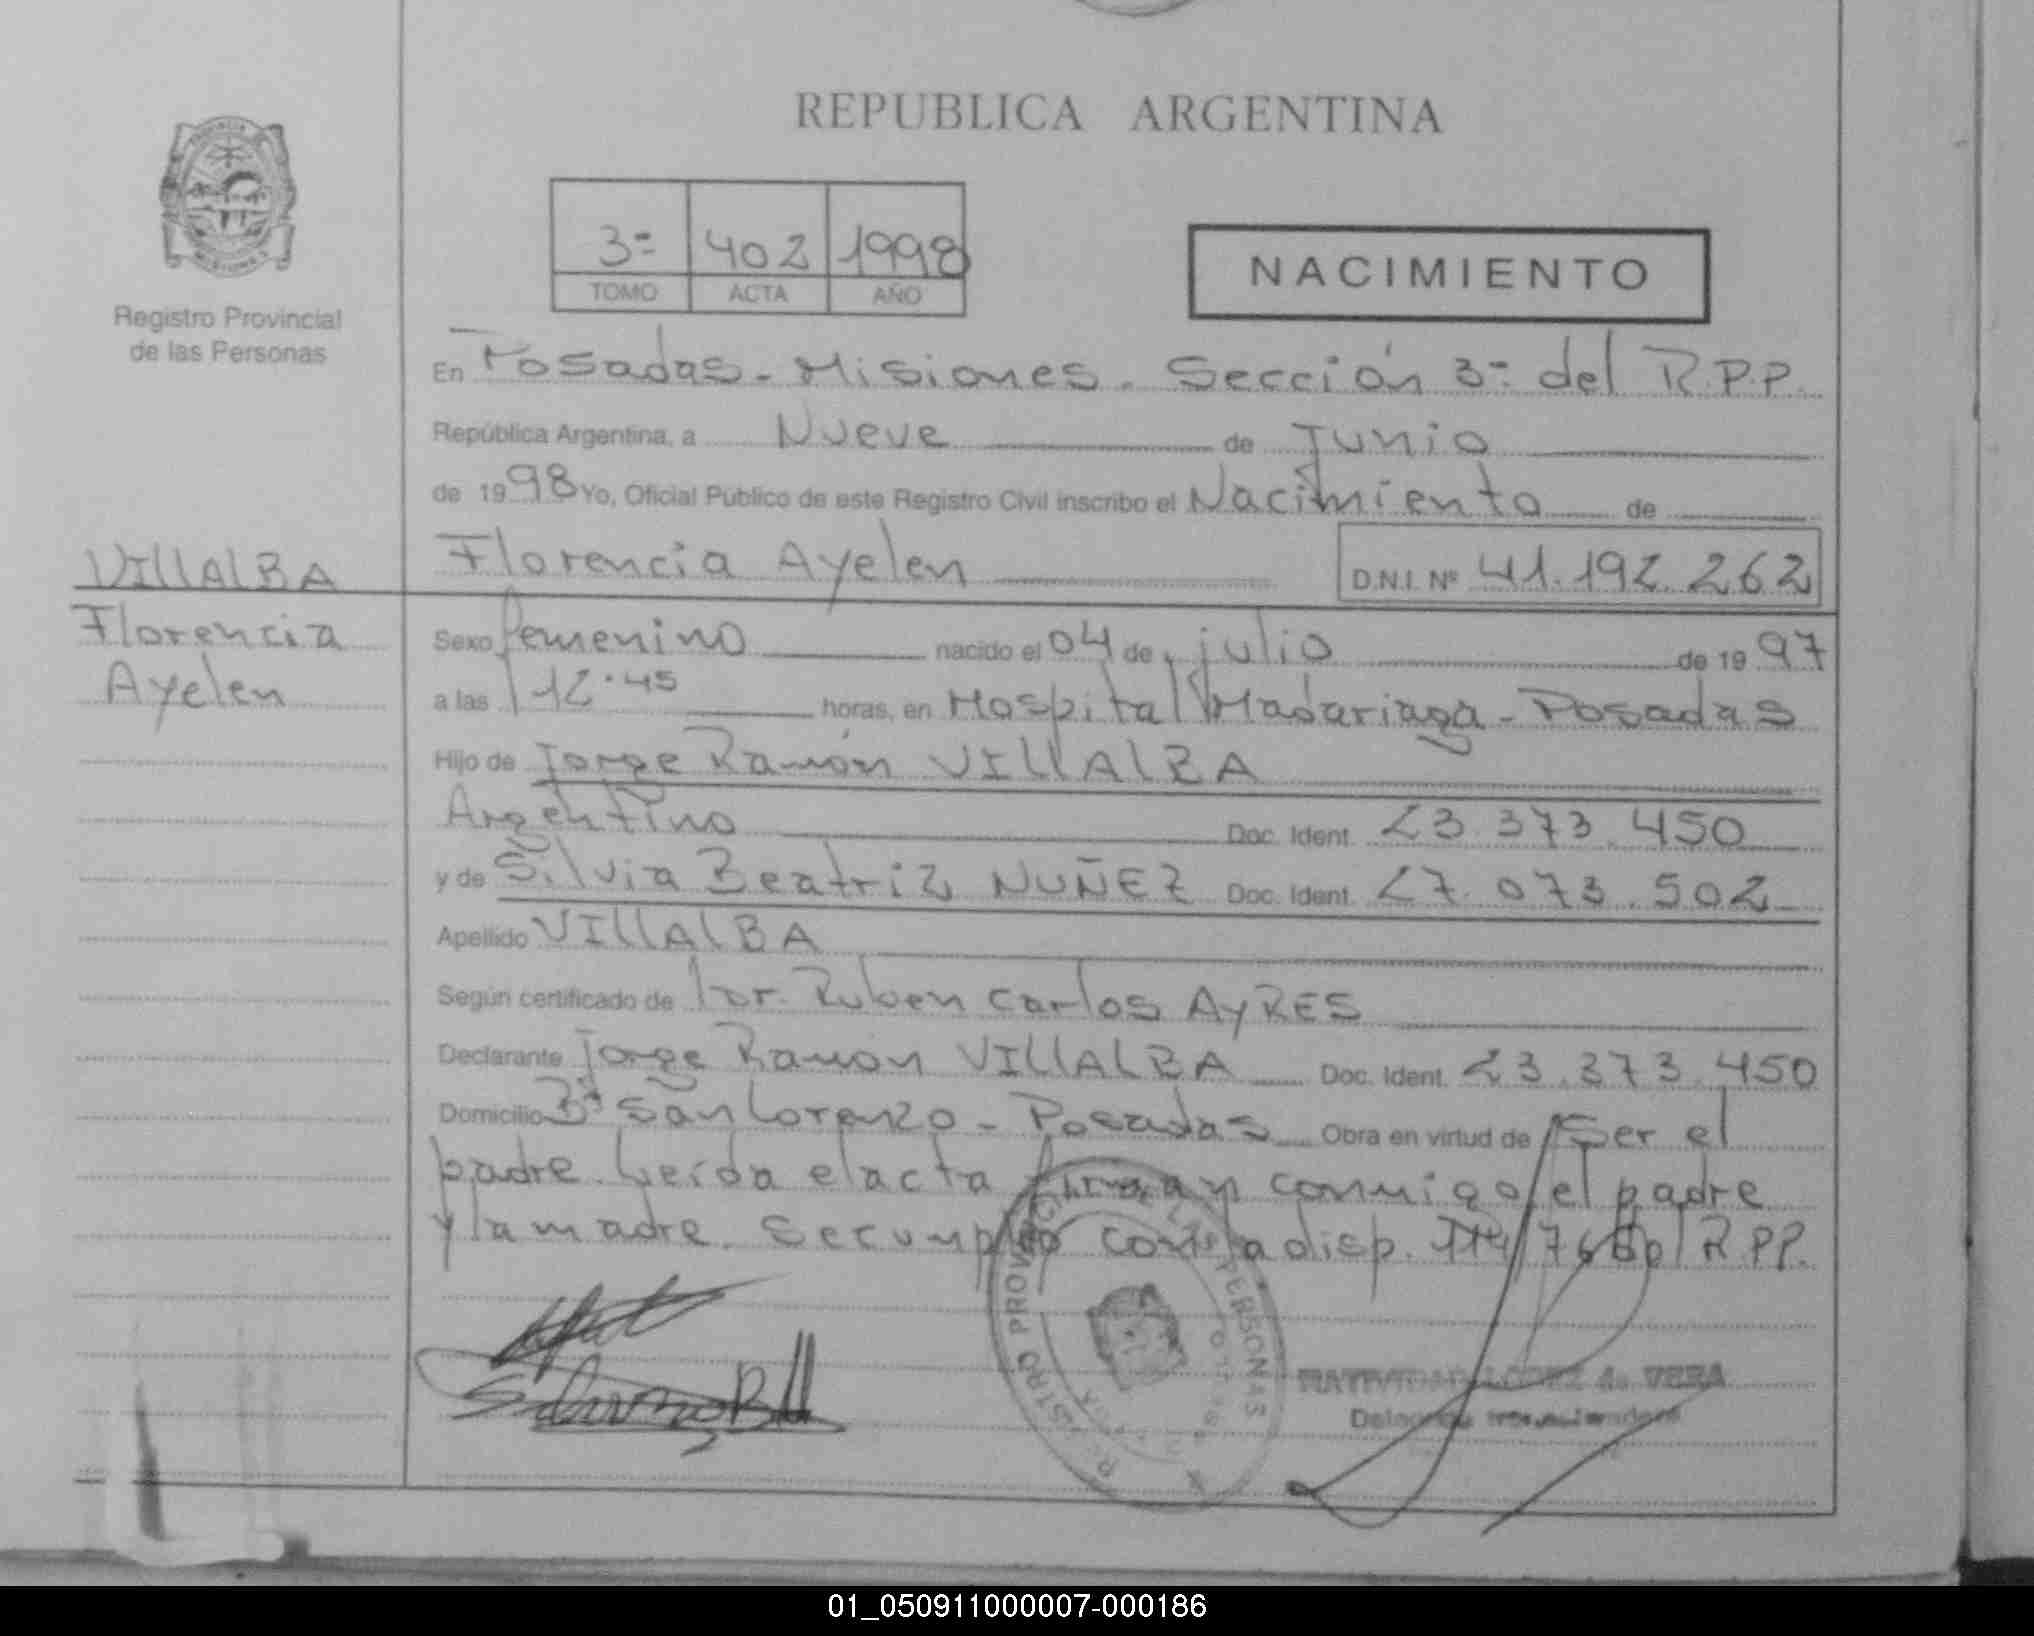 REPUBLICA ARGENTINA
Registro Provincial
de las Personas
3= 402 1998
TOMO ACTA AÑO
NACIMIENTO
En Posadas - Misiones - Sección 3= del R.P.P.
República Argentina, a Nueve de Junio
de 1998 Yo, Oficial Público de este Registro Civil inscribo el Nacimiento de
VILLALBA
Florencia
Ayelen
Florencia Ayelen D.N.I. Nº 41.192.262
Sexo femenino nacido el 04 de julio de 1997
a las 12.45 horas, en Hospital Madariaga - Posadas
Hijo de Jorge Ramón VILLALBA
Argentino Doc. Ident. 23.373.450
y de Silvia Beatriz NUÑEZ Doc. Ident. 27.073.502
Apellido VILLALBA
Según certificado de Ruben Carlos AYRES
Declarante Jorge Ramón VILLALBA Doc. Ident. 23.373.450
Domicilio Bº San Lorenzo - Posadas Obra en virtud de Ser el
padre. Leída el acta firman conmigo el padre
y la madre. Se cumple con la disp. R.P.P.
REGISTRO PROVINCIAL DE LAS PERSONAS
NATIVIDAD LOPEZ de VERA
01_050911000007-000186